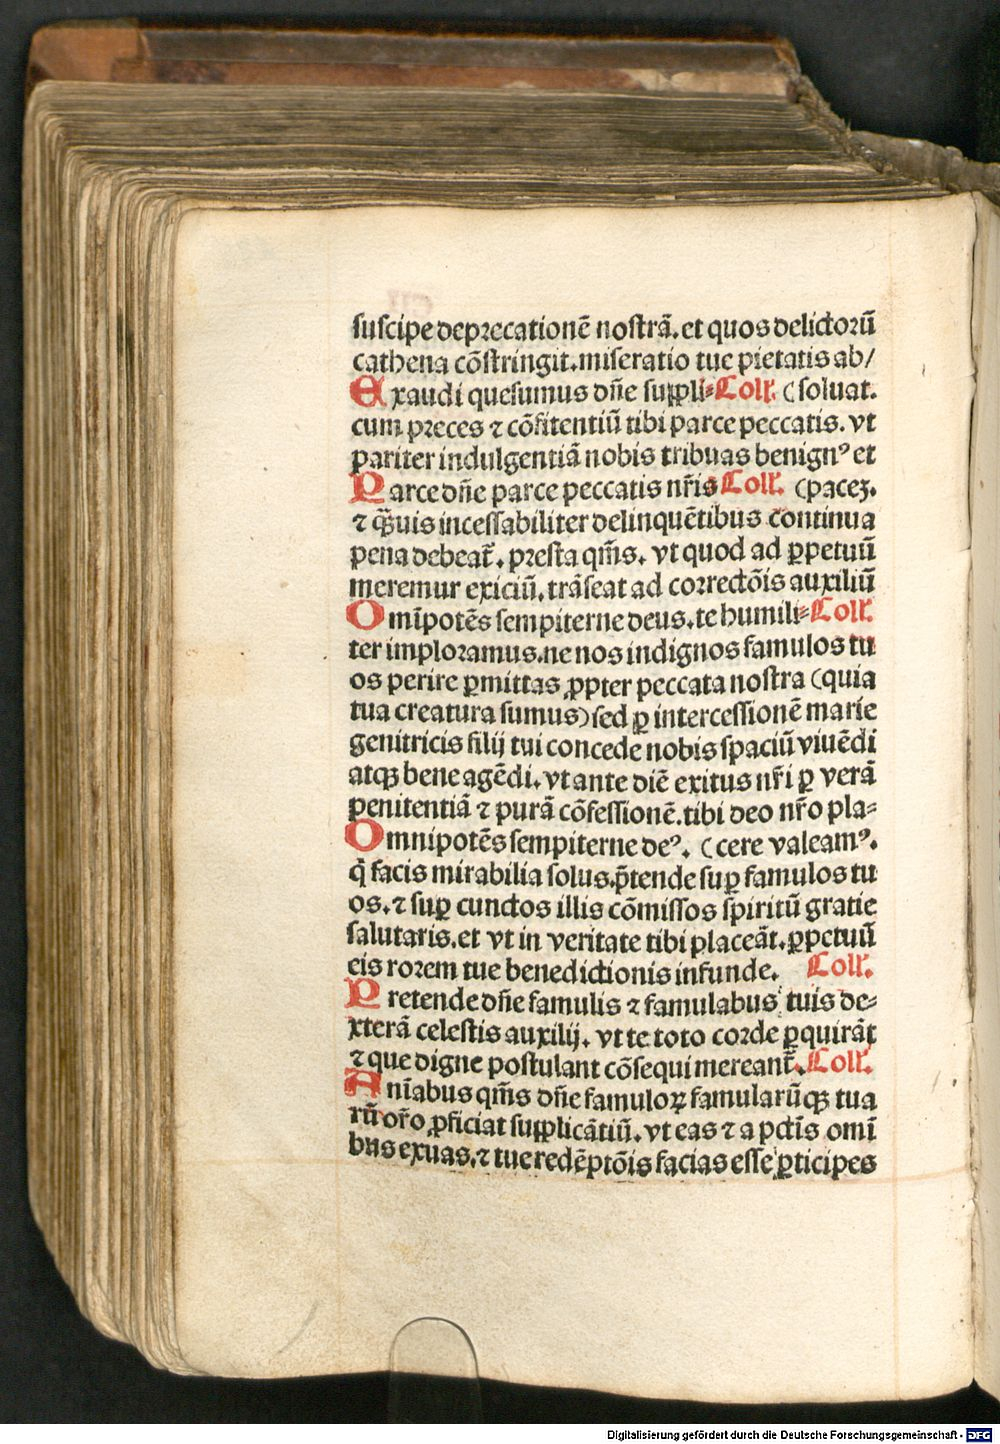 suscipe deprecationē nostrā. et quos delictorū
cathena cōstringit. miseratio tue pietatis ab/
Exaudi quesumus dn̄e suppli⸗ Coll. (soluat.
cum preces ⁊ cōfitentiū tibi parce peccatis. vt
pariter indulgentiā nobis tribuas benignꝰ et
Parce dn̄e parce peccatis nr̄is Coll. (pacez.
⁊ q̄uis incessabiliter delinquētibus continua
pena debeat᷑. presta qm̄s. vt quod ad ꝑpetuū
meremur exiciū. trāseat ad correctōis auxiliū
Om̄ipotēs sempiterne deus. te humili⸗ Coll.
ter imploramus. ne nos indignos famulos tu
os perire ꝑmittas ꝓpter peccata nostra (quia
tua creatura sumus) sed ꝑ intercessionē marie
genitricis filij tui concede nobis spaciū viuēdi
atqꝫ bene agēdi. vt ante diē exitus nr̄i ꝑ verā
penitentiā ⁊ purā cōfessionē. tibi deo nr̄o pla⸗
Omnipotēs sempiterne deꝰ. (cere valeamꝰ.
q̇ facis mirabilia solus. p̄tende suꝑ famulos tu
os. ⁊ suꝑ cunctos illis cōmissos spiritū gratie
salutaris. et vt in veritate tibi placeāt. ꝑpetuū
eis rorem tue benedictionis infunde. Coll.
Pretende dn̄e famulis ⁊ famulabus tuis de⸗
xterā celestis auxilij. vt te toto corde ꝑquirāt
⁊ que digne postulant cōsequi mereant᷑. Coll.
Anīabus qm̄s dn̄e famuloꝝ famularūqꝫ tua
rū or̄o ꝓficiat supplicātiū. vt eas ⁊ a pctīs omī
bus exuas. ⁊ tue redēptōis facias esse ꝑticipes
Digitalisierung gefördert durch die Deutsche Forschungsgemeinschaft - DFG